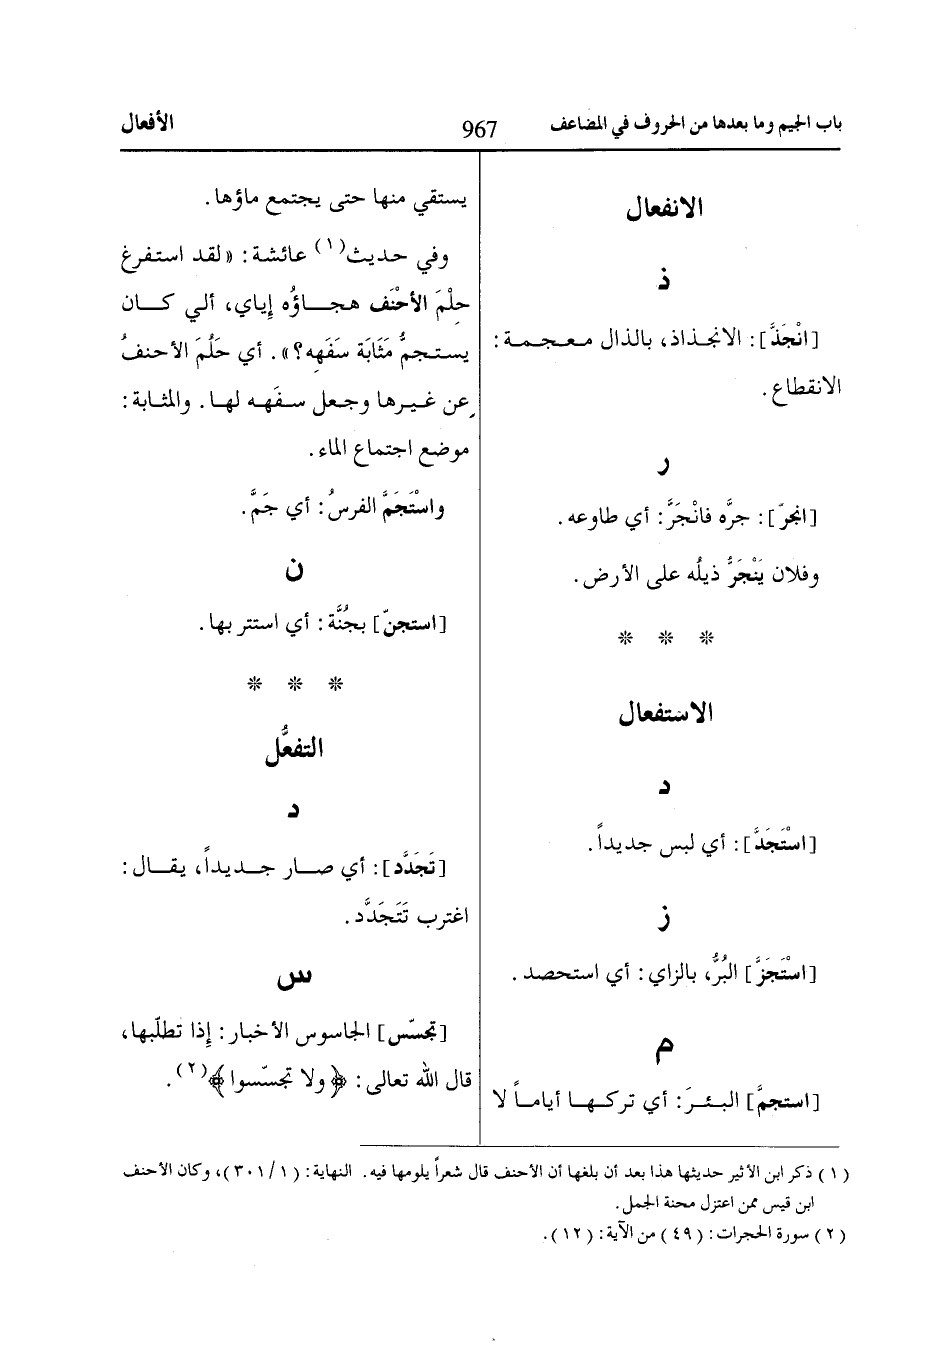 باب الجيم وما بعدها من الحروف في المضاعف
967
الأفعال
الانفعال
ذ
[انْجَذَّ]: الانجذاذ، بالذال معجمة:
الانقطاع.
ر
[انجرّ]: جرَّه فانْجَرَّ: أي طاوعه.
وفلان يَنْجَرُّ ذيلُه على الأرض.
* * *
الاستفعال
د
[اسْتَجَدَّ]: أي لبس جديداً.
ز
[اسْتَجَزَّ] البُرُّ، بالزاي: أي استحصد.
م
[استجمَّ] البئرَ: أي تركها أياماً لا
يستقي منها حتى يجتمع ماؤها.
وفي حديث(١) عائشة: «لقد استفرغ
حِلْمَ الأحْنَف هجاؤُه إياي، ألي كان
يستجمُّ مَثَابَة سَفَهِه؟». أي حَلُمَ الأحنفُ
عن غيرها وجعل سفَهه لها. والمثابة:
موضع اجتماع الماء.
واسْتَجَمَّ الفرسُ: أي جَمَّ.
ن
[استجنّ] بجُنَّة: أي استتر بها.
* * *
التفعُّل
د
[تَجَدَّد]: أي صار جديداً، يقال:
اغترب تَتَجَدَّد.
س
[تجسّس] الجاسوس الأخبار: إذا تطلّبها،
قال الله تعالى: ﴿ولا تجسّسوا﴾(٢).
(١) ذكر ابن الأثير حديثها هذا بعد أن بلغها أن الأحنف قال شعراً يلومها فيه. النهاية: (١/ ٣٠١)، وكان الأحنف
ابن قيس ممن اعتزل محنة الجمل.
(٢) سورة الحجرات: (٤٩) من الآية: (١٢).